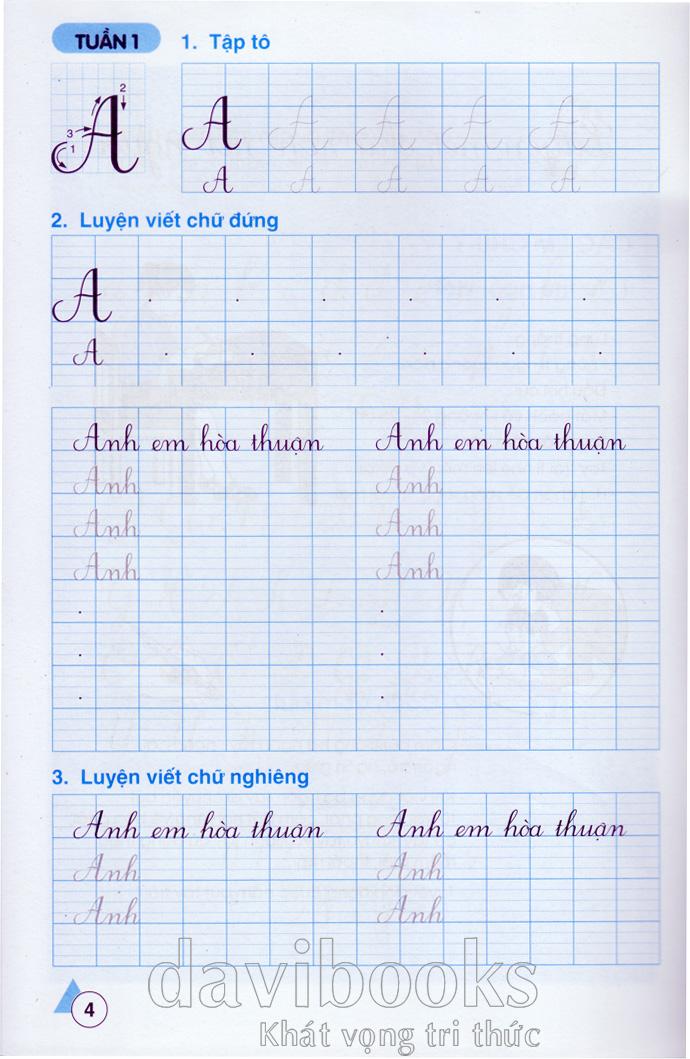 TUẦN 1 1. Tập tô
2
3
1
A A A A A A
A A A A A
2. Luyện viết chữ đứng
A
A
Anh em hòa thuận Anh em hòa thuận
Anh Anh
Anh Anh
Anh Anh
3. Luyện viết chữ nghiêng
Anh em hòa thuận Anh em hòa thuận
Anh Anh
Anh Anh
davibooks
4 Khát vọng tri thức